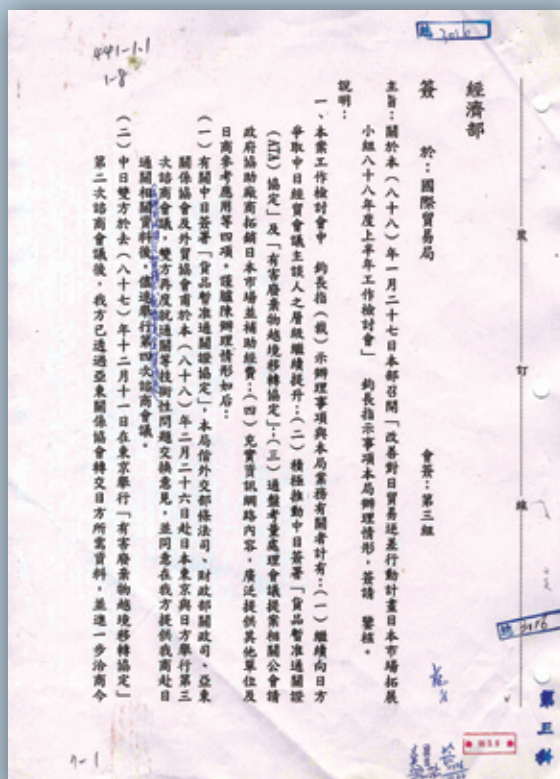 441-1.1
1-8
經濟部
簽　於：國際貿易局　會簽：第三組
主旨：關於本（八十八）年一月二十七日本部召開「改善對日貿易逆差行動計畫日本市場拓展
小組八十八年度上半年工作檢討會」　鈞長指示事項本局辦理情形，簽請　鑒核。
說明：
一、本案工作檢討會中　鈞長指（裁）示辦理事項與本局業務有關者計有：（一）繼續向日方
爭取中日經貿會議主談人之層級繼續提升；（二）積極推動中日簽署「貨品暫准通關證
（ATA）協定」及「有害廢棄物越境移轉協定」；（三）通盤考量處理會議提案相關公會請
政府協助廠商拓銷日本市場並補助經費；（四）充實資訊網路內容，廣泛提供其他單位及
日商參考應用等四項，謹臚陳辦理情形如后：
（一）有關中日簽署「貨品暫准通關證協定」，本局偕外交部條法司、財政部關政司、亞東
關係協會及外貿協會甫於本（八十八）年二月二十六日赴日本東京與日方舉行第三
次諮商會議，雙方再度就通關等技術性問題交換意見，並同意在我方提供我商赴日
通關相關資料後，儘速舉行第四次諮商會議。
（二）中日雙方於去（八十七）年十二月十一日在東京舉行「有害廢棄物越境移轉協定」
第二次諮商會議後，我方已透過亞東關係協會轉交日方所需資料，並進一步洽商今
裝
訂
線
第三科
7-1